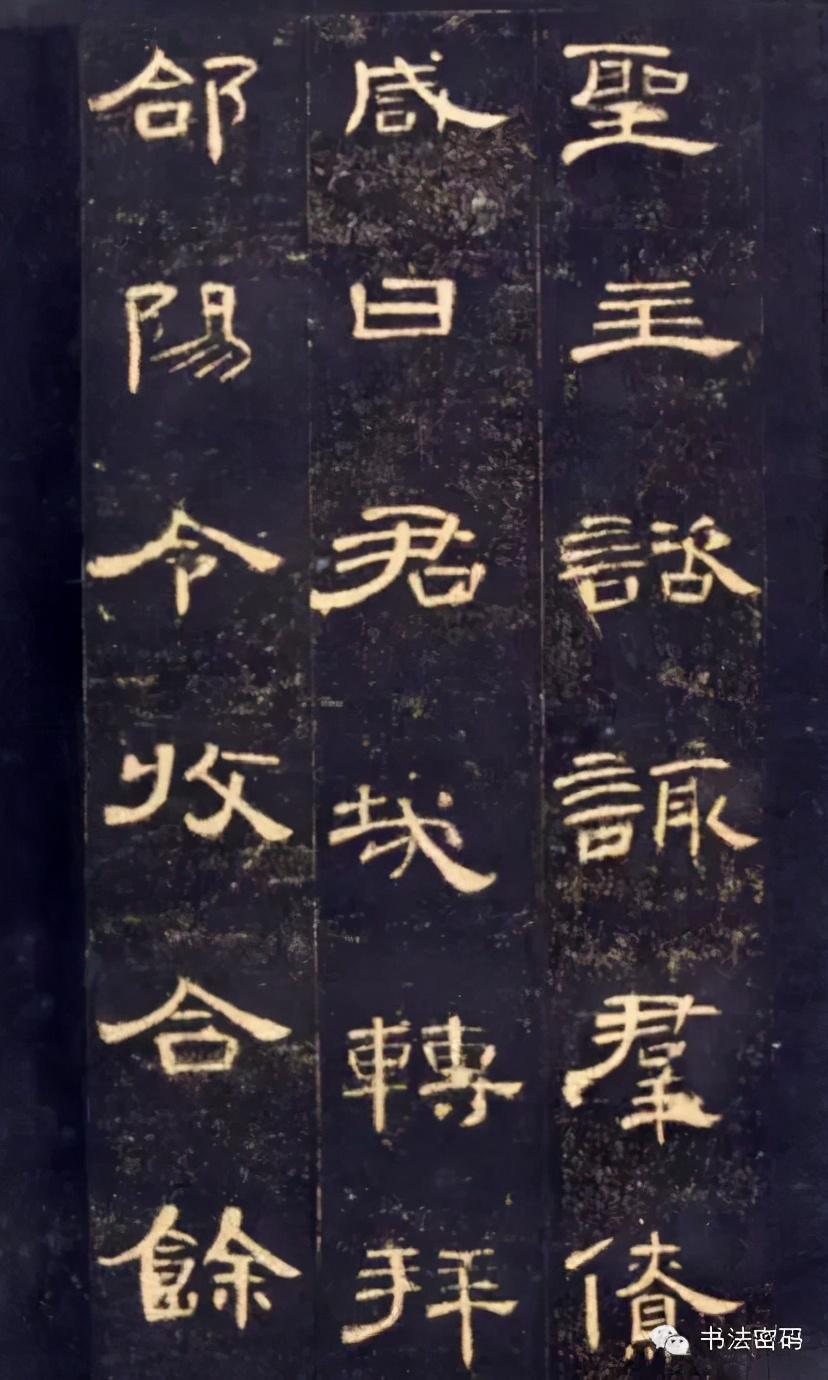 聖主諮諏羣僚
咸曰君哉轉拜
郃陽令收合餘
书法密码